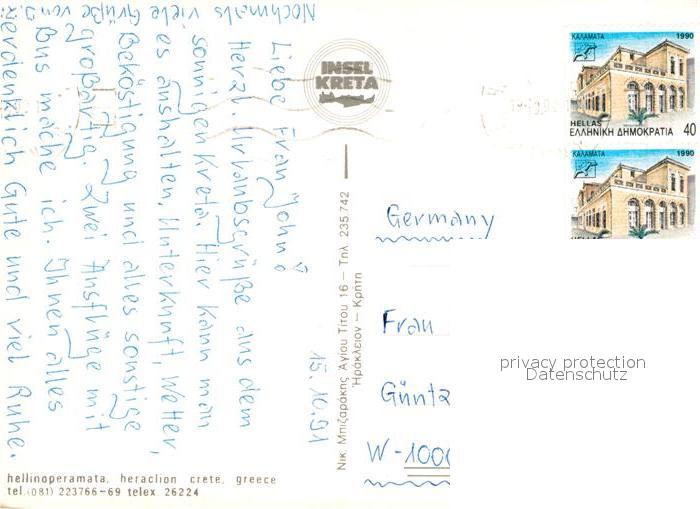 15.10.91
Liebe Frau John!
Herzl. Urlaubsgrüße aus dem
sonnigen Kreta. Hier kann man
es aushalten, Unterkunft, Wetter,
Beköstigung und alles sonstige
großartig. Zwei Ausflüge mit
Bus mache ich. Ihnen alles
erdenklich Gute und viel Ruhe.
Nochmals viele Grüße von
INSEL
KRETA
Νικ. Μπιζαράκης Αγίου Τίτου 16 – Τηλ. 235 742
Ἡράκλειον – Κρήτη
hellinoperamata, heraclion crete, greece
tel.(081) 223766-69 telex 26224
ΚΑΛΑΜΑΤΑ 1990
HELLAS 40
ΕΛΛΗΝΙΚΗ ΔΗΜΟΚΡΑΤΙΑ
ΚΑΛΑΜΑΤΑ 1990
HELLAS
Germany
Frau
Güntz
W-1000
privacy protection
Datenschutz